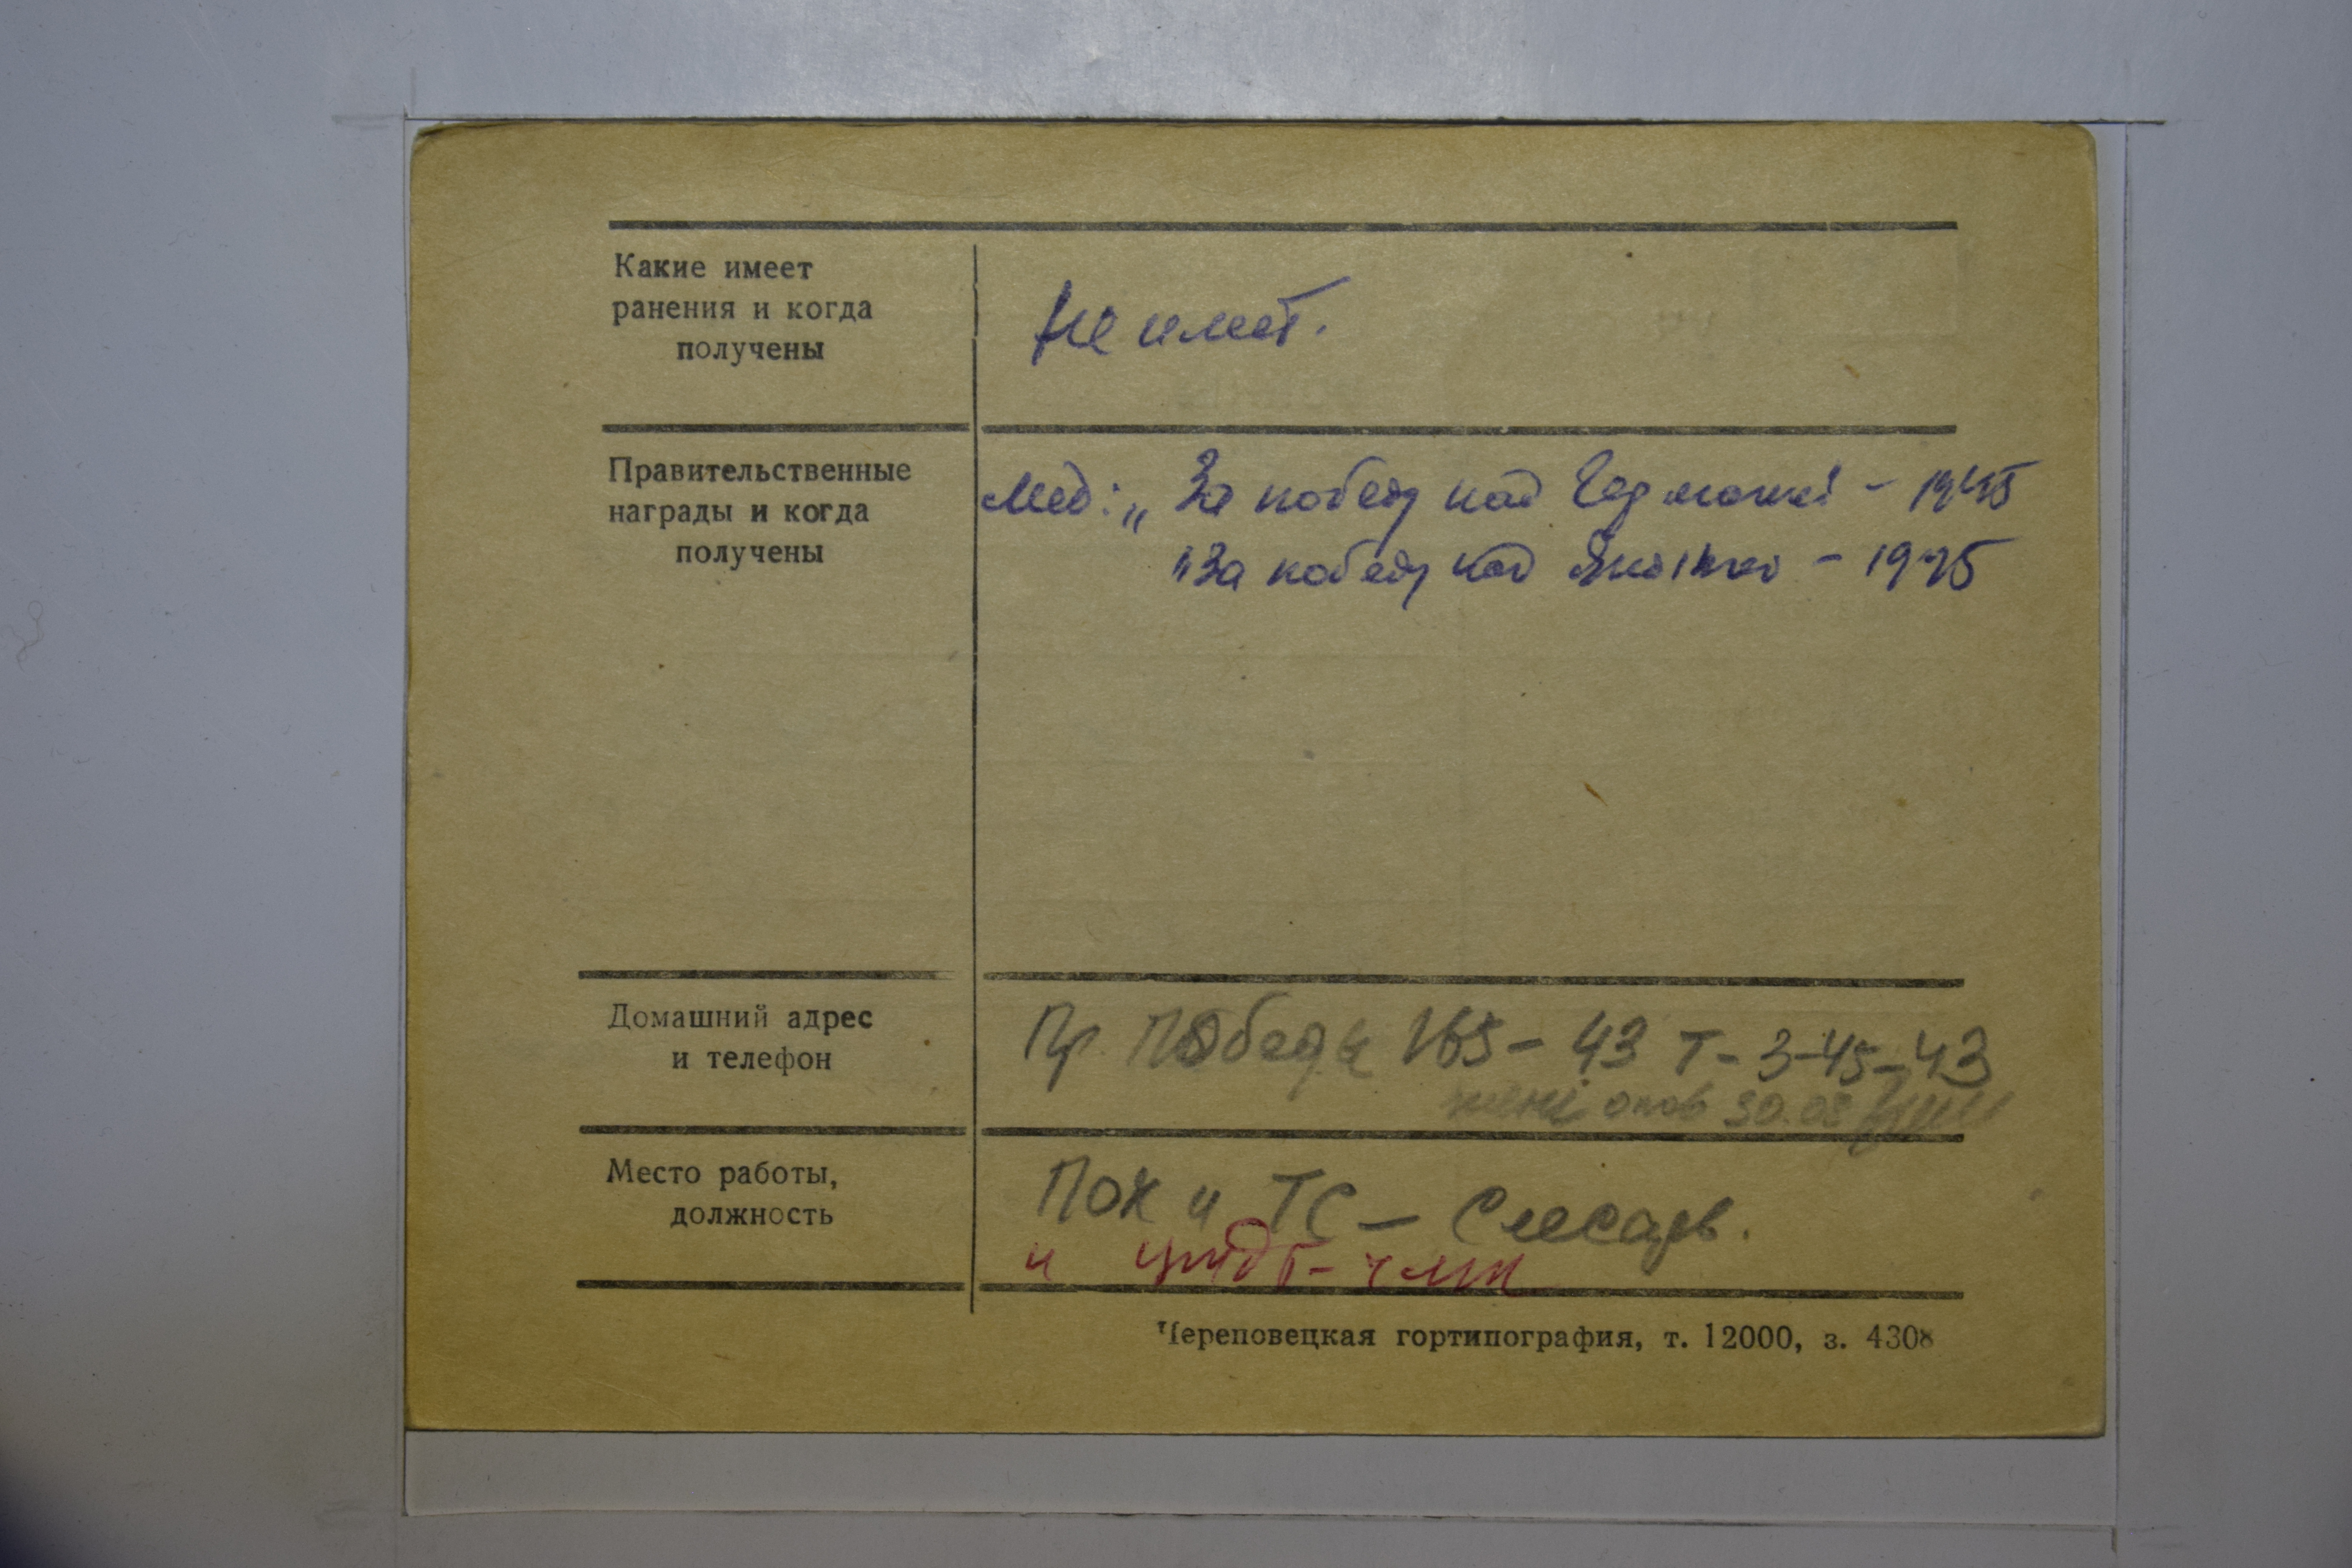 Какие имеет
ранения и когда
получены
Не имеет.
Правительственные
награды и когда
получены
Мед: „За победу над Германией - 1945
"За победу над Японию - 1945
Домашний адрес
и телефон
Пр. Победы 165 - 43 Т - 3-45-43
Место работы,
должность
ПОК и ТС - Слесарь.
Череповецкая гортипография, т. 12000, з. 4308